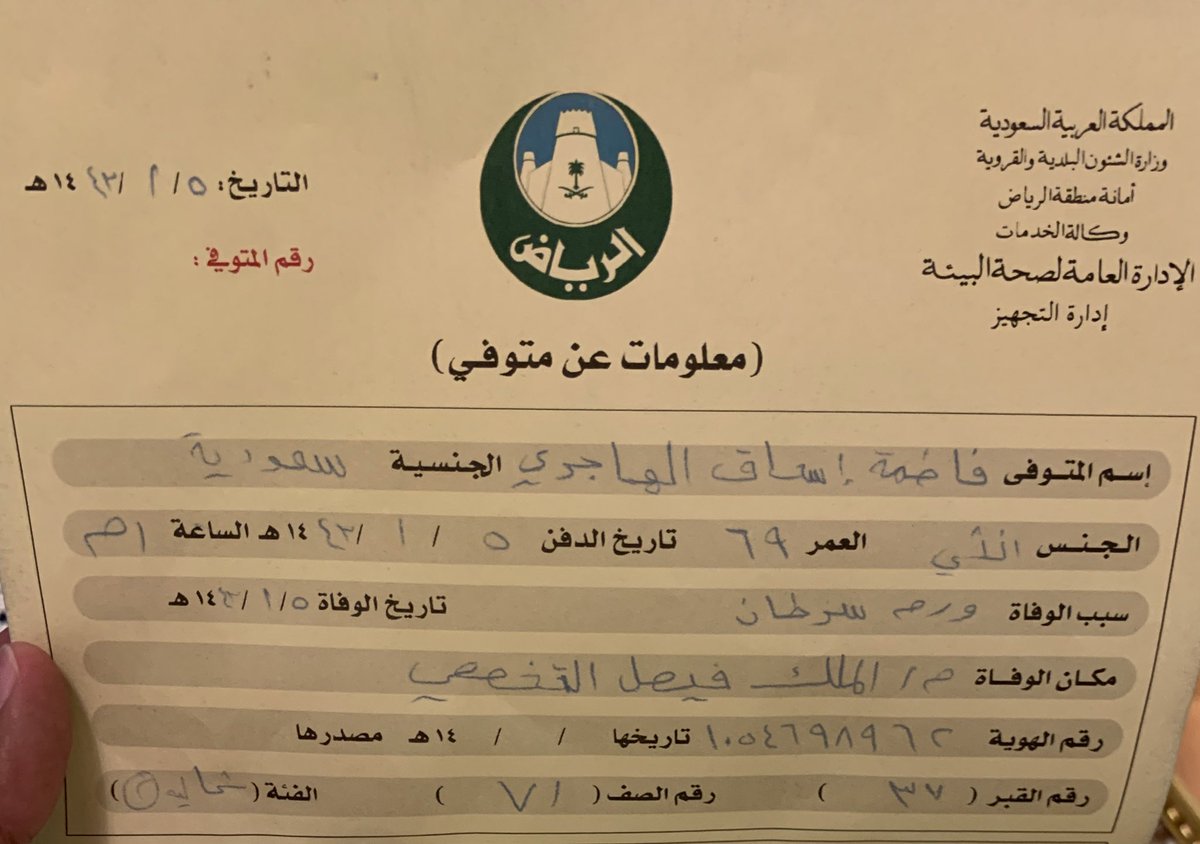 المملكة العربية السعودية
وزارة الشئون البلدية والقروية
أمانة منطقة الرياض
وكالة الخدمات
الإدارة العامة لصحة البيئة
إدارة التجهيز
الرياض
التاريخ: ٥ / ١ / ١٤٤٣هـ
رقم المتوفي :
(معلومات عن متوفي)
إسم المتوفى فاطمة إسحاق الهاجري الجنسية سعودية
الجنس انثى العمر ٦٩ تاريخ الدفن ٥ / ١ / ١٤٤٣هـ الساعة
سبب الوفاة ورم سرطان تاريخ الوفاة ٥ / ١ / ١٤٤٣هـ
مكان الوفاة م/ الملك فيصل التخصصي
رقم الهوية ١٠٥٤٦٩٨٩٦٢ تاريخها / / ١٤هـ مصدرها
رقم القبر ( ٣٧ ) رقم الصف ( ٧١ ) الفئة ( شماليه )